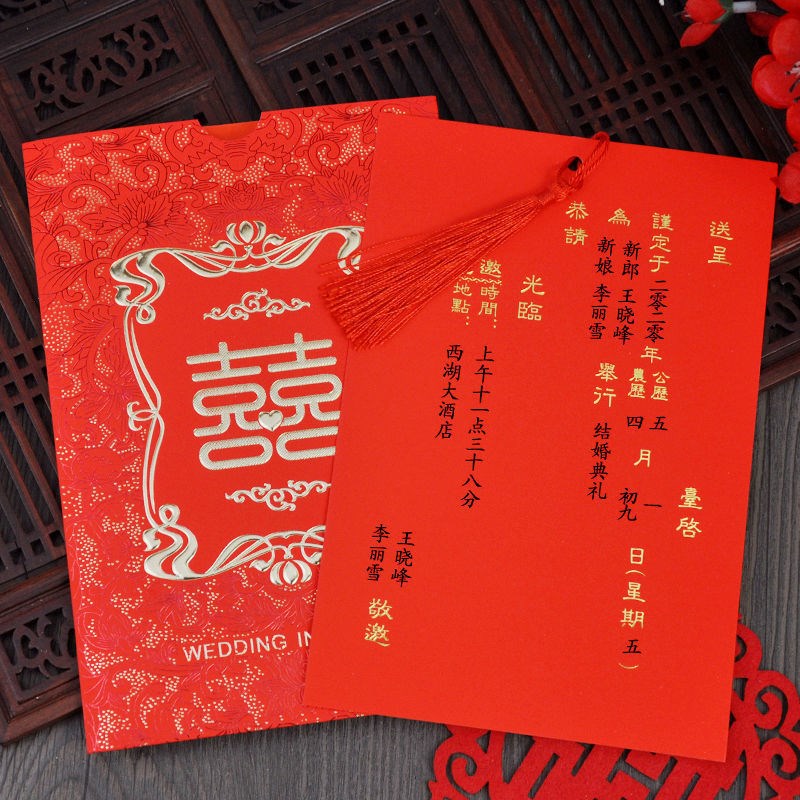 囍
WEDDING IN
送呈 臺啓
謹定于二零二零年公曆五月一日(星期五)
農曆四 初九
為 新郎 王晓峰 舉行 结婚典礼
新娘 李丽雪
恭請
光臨
邀時間：上午十一点三十八分
地點：西湖大酒店
王晓峰
李丽雪 敬邀